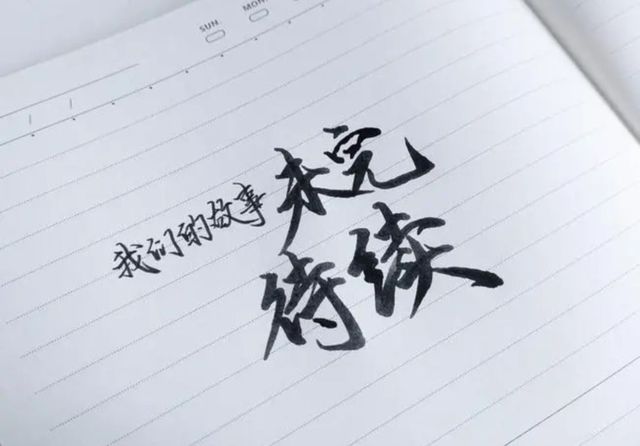 SUN
MON
我们的故事未完
待续